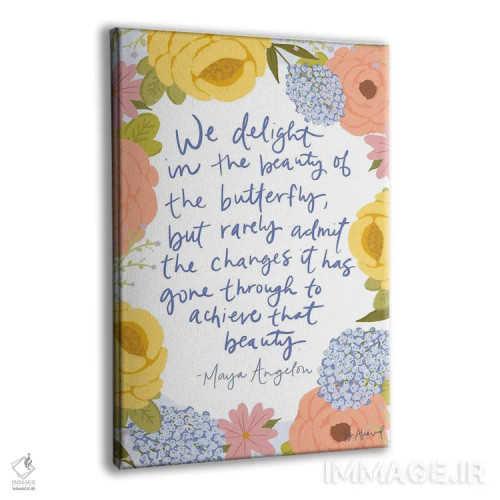 We delight
in the beauty of
the butterfly,
but rarely admit
the changes it has
gone through to
achieve that
beauty
-Maya Angelou
IMMAGE
IMMAGE.IR
IMMAGE.IR